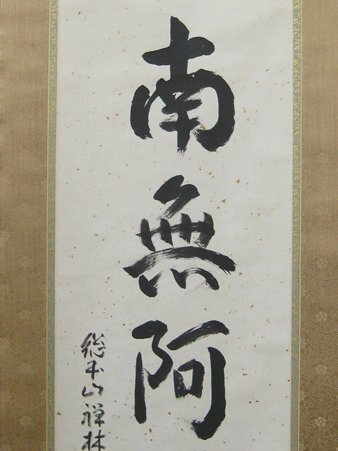 南無阿
総本山禅林